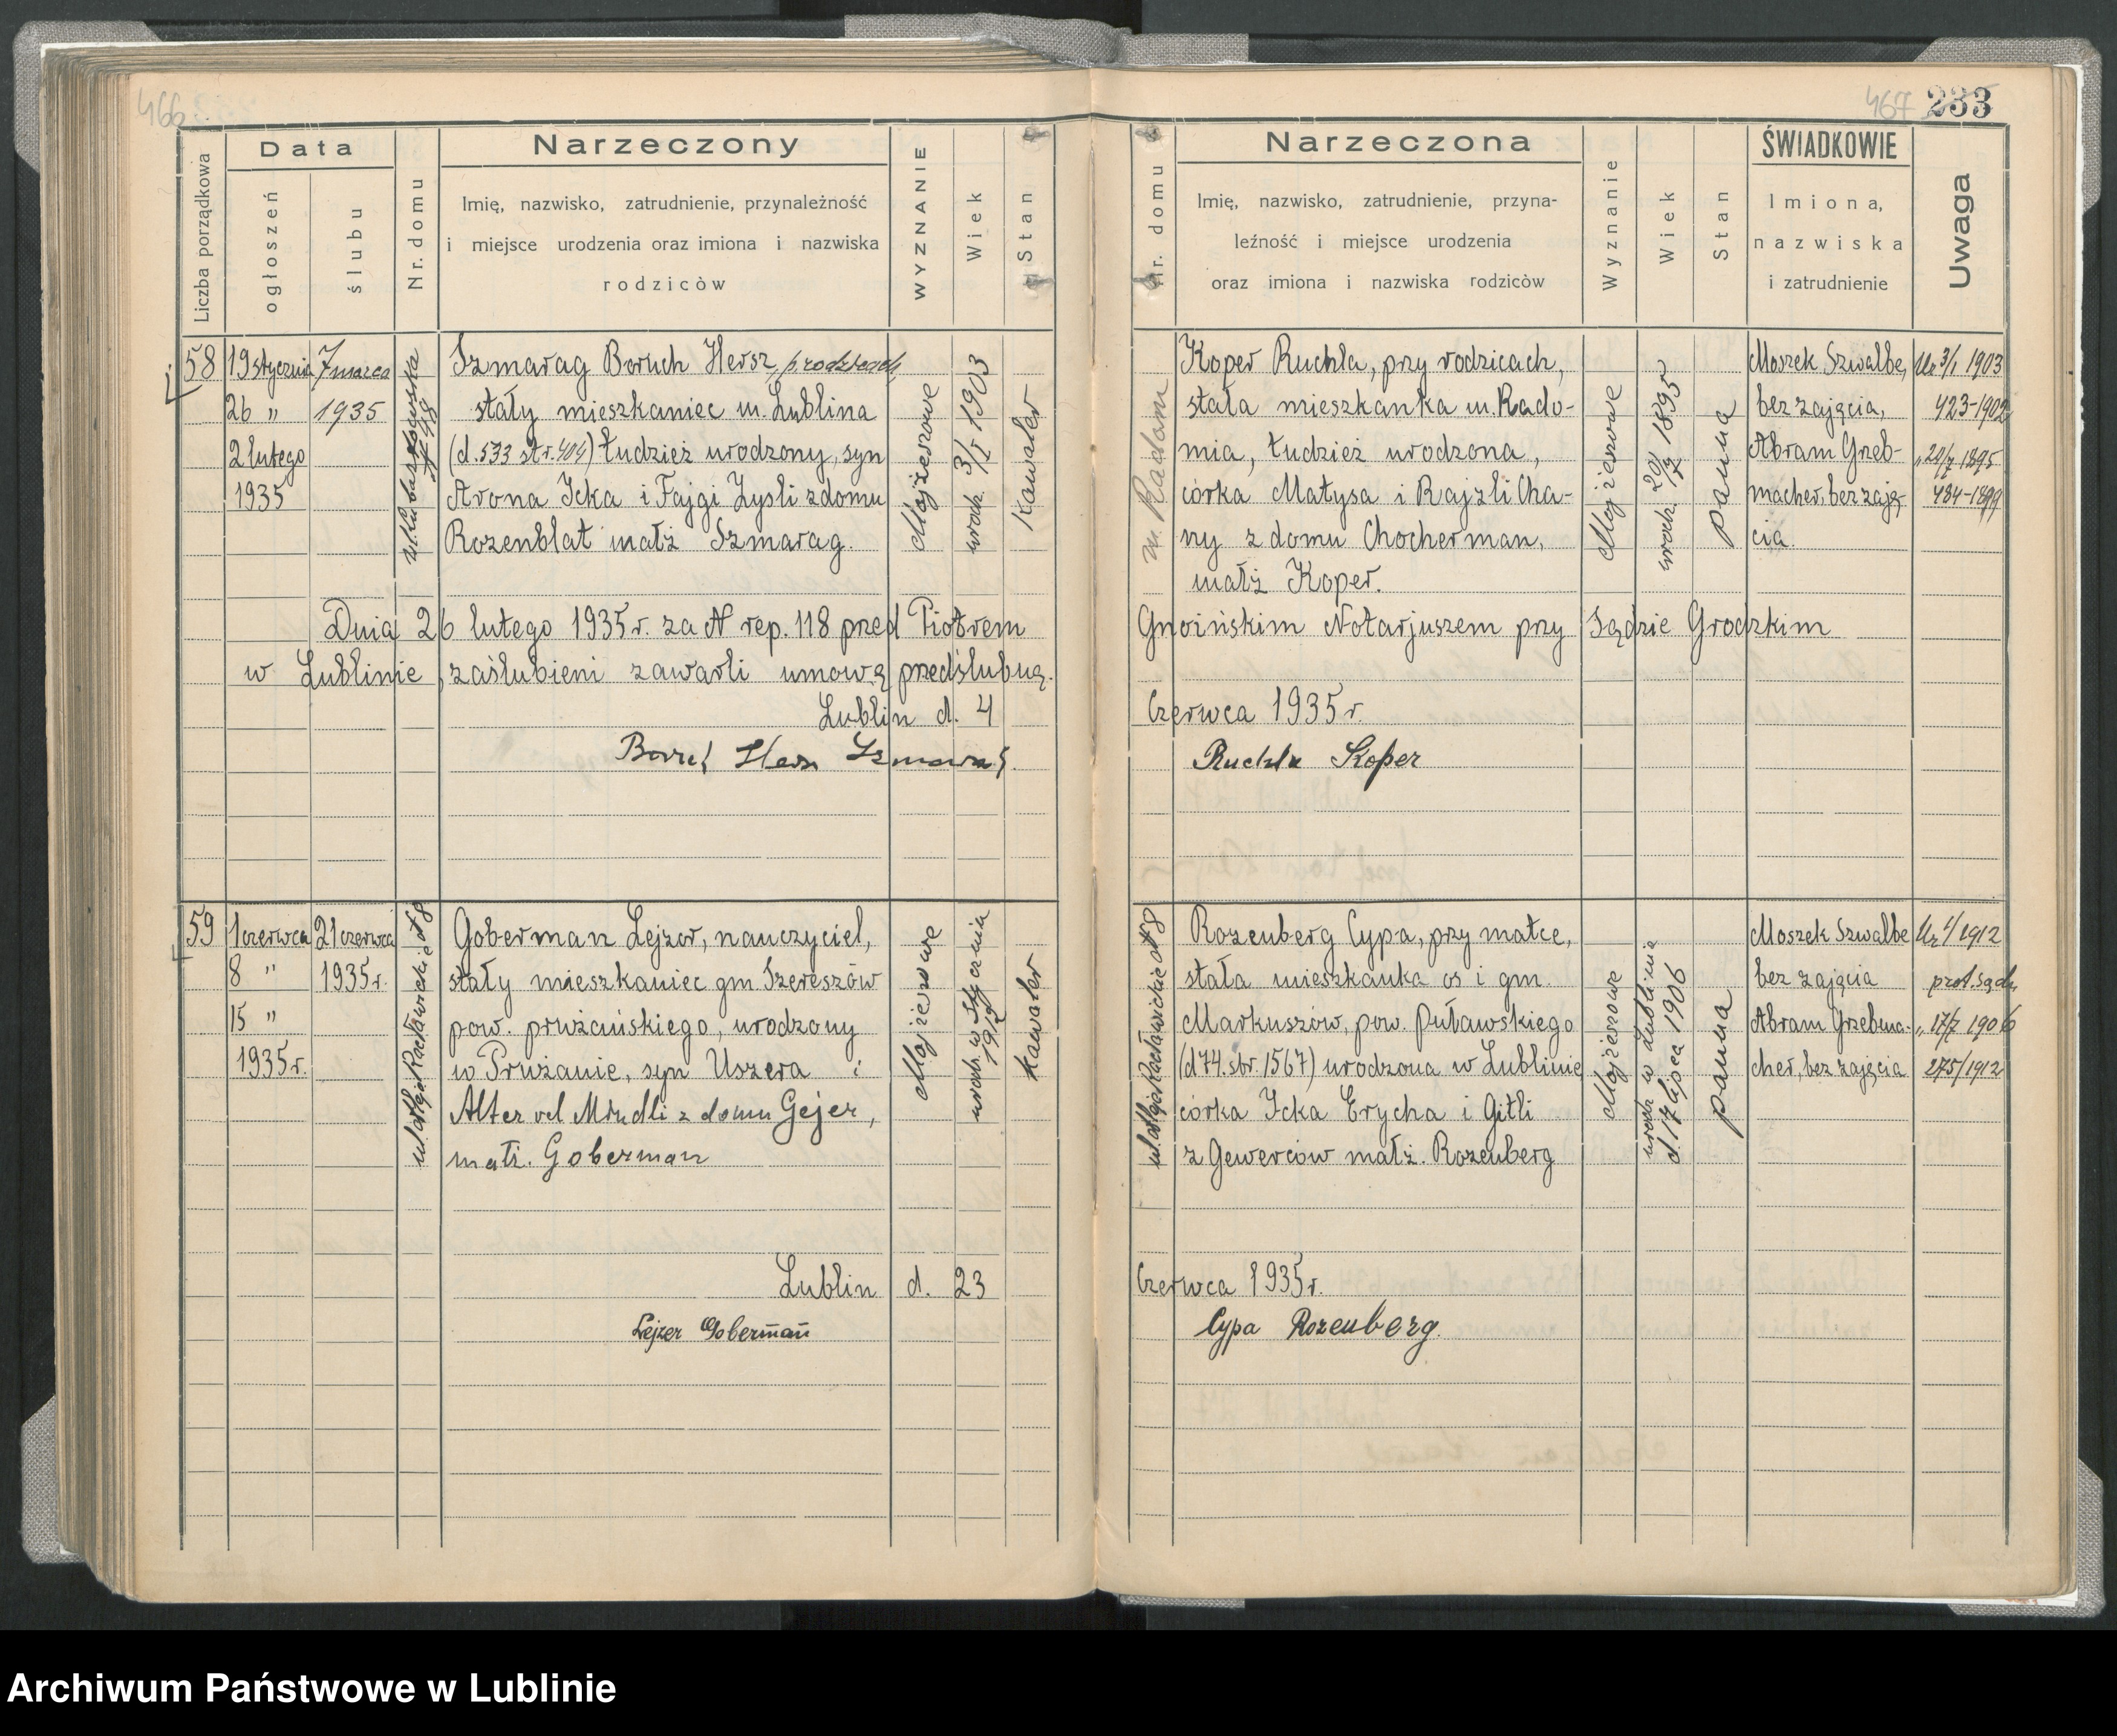 466
467 233
Data
Narzeczony
Liczba porządkowa
ogłoszeń
ślubu
Nr. domu
Imię, nazwisko, zatrudnienie, przynależność
i miejsce urodzenia oraz imiona i nazwiska
rodziców
WYZNANIE
Wiek
Stan
58
19 stycznia
26 "
2 lutego
1935
7 marca
1935
Szmarag Boruch Hersz, p. rodzicach
stały mieszkaniec m. Lublina
(d. 533 str. 404) tudzież urodzony, syn
Arona Icka i Fajgi Zysli z domu
Rozenblat małż Szmarag.
Mojżeszowe
urodz. 3/I 1903
Kawaler
Dnia 26 lutego 1935 r. za N rep. 118 przed Piotrem
w Lublinie, zaślubieni zawarli umowę przedślubną.
Lublin d. 4
59
1 czerwca
8 "
15 "
1935 r.
21 czerwca
1935 r.
ul. Aleja Racławickie N 8
Goberman Lejzor, nauczyciel,
stały mieszkaniec gm Szereszów
pow. prużańskiego, urodzony
w Prużanie, syn Uszera i
Alter vel Mindli z domu Gejer,
małż. Goberman
Mojżeszowe
urodz. w styczniu
1912
Kawaler
Lublin d. 23
Lejzer Goberman
Narzeczona
ŚWIADKOWIE
Nr. domu
Imię, nazwisko, zatrudnienie, przyna-
leźność i miejsce urodzenia
oraz imiona i nazwiska rodziców
Wyznanie
Wiek
Stan
Imiona,
nazwiska
i zatrudnienie
Uwaga
m. Radom
Koper Ruchla, przy rodzicach,
stała mieszkanka m. Rado-
mia, tudzież urodzona,
córka Matysa i Rajzli Cha-
ny z domu Chocherman,
małż Koper.
Mojżeszowe
urodz. 20/7 1895
panna
Moszek Szwalbe,
bez zajęcia,
Abram Grzeb-
macher, bez zaję-
cia.
Ur 3/1 1903
423-1902
" 20/7 1895
484-1899
Gnoińskim Notarjuszem przy Sądzie Grodzkim
Czerwca 1935 r.
Ruchla Koper
ul. Aleja Racławickie N 8
Rozenberg Cypa, przy matce,
stała mieszkanka os i gm.
Markuszów, pow. Puławskiego
(d 74. str. 1567) urodzona w Lublinie
córka Icka Erycha i Gitli
z Gewerców małż. Rozenberg
Mojżeszowe
urodz w Lublinie
d. 17 lipca 1906
panna
Moszek Szwalbe
bez zajęcia
Abram Grzebma-
cher, bez zajęcia
Ur 1/1912
prot. sądu.
" 17/7 1906
275/1912
Czerwca 1935 r.
Cypa Rozenberg
Archiwum Państwowe w Lublinie